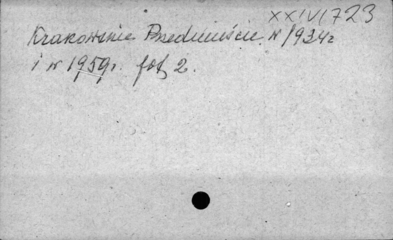 XXIV/723
Krakowskie Przedmieście w 1934r
i w 1959r. fot 2.